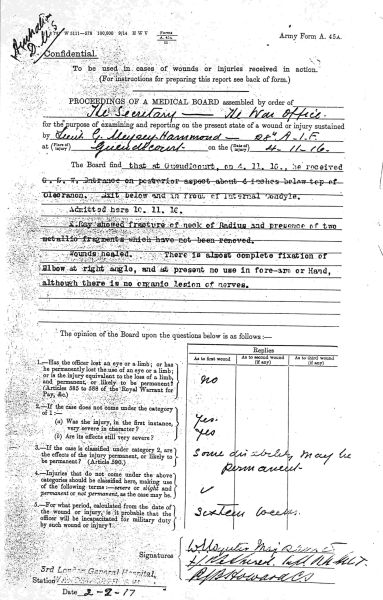 Australian
W 5111—578 100,000 9/14 H W V Forms A. 45A
Army Form A. 45A.
Confidential.
To be used in cases of wounds or injuries received in action.
(For instructions for preparing this report see back of form.)
PROCEEDINGS OF A MEDICAL BOARD assembled by order of
The Secretary — The War Office.
for the purpose of examining and reporting on the present state of a wound or injury sustained
by Lieut G. Meysey Hammond — 28th A.I.F.
at (Place of injury) Gueudecourt on the (Date of injury) 4-11-16.
The Board find that at Gueudlcourt, on 4. 11. 16., he received
G. S. W. Entrance on posterior aspect about 4 inches below top of
Olecranon. Exit below and in front of internal condyle.
Admitted here 10. 11. 16.
X.Ray showed fracture of neck of Radius and presence of two
metallic fragments which have not been removed.
Wounds healed. There is almost complete fixation of
Elbow at right angle, and at present no use in fore-arm or Hand,
although there is no organic lesion of nerves.
The opinion of the Board upon the questions below is as follows:—
Replies
As to first wound
As to second wound (if any)
As to third wound (if any)
1.—Has the officer lost an eye or a limb; or has
he permanently lost the use of an eye or a limb;
or is the injury equivalent to the loss of a limb,
and permanent, or likely to be permanent?
(Articles 585 to 588 of the Royal Warrant for
Pay, &c.)
no
2.—If the case does not come under the category
of 1:—
(a) Was the injury, in the first instance,
very severe in character?
Yes.
(b) Are its effects still very severe?
Yes
3.—If the case is classified under category 2, are
the effects of the injury permanent, or likely to
be permanent? (Article 590.)
Some disability may be
permanent
4.—Injuries that do not come under the above
categories should be classified here, making use
of the following terms:—severe or slight and
permanent or not permanent, as the case may be.
5.—For what period, calculated from the date
of the wound or injury, is it probable that the
officer will be incapacitated for military duty
by such wound or injury?
Sixteen weeks.
Signatures
3rd London General Hospital,
Station
Date 2-2-17